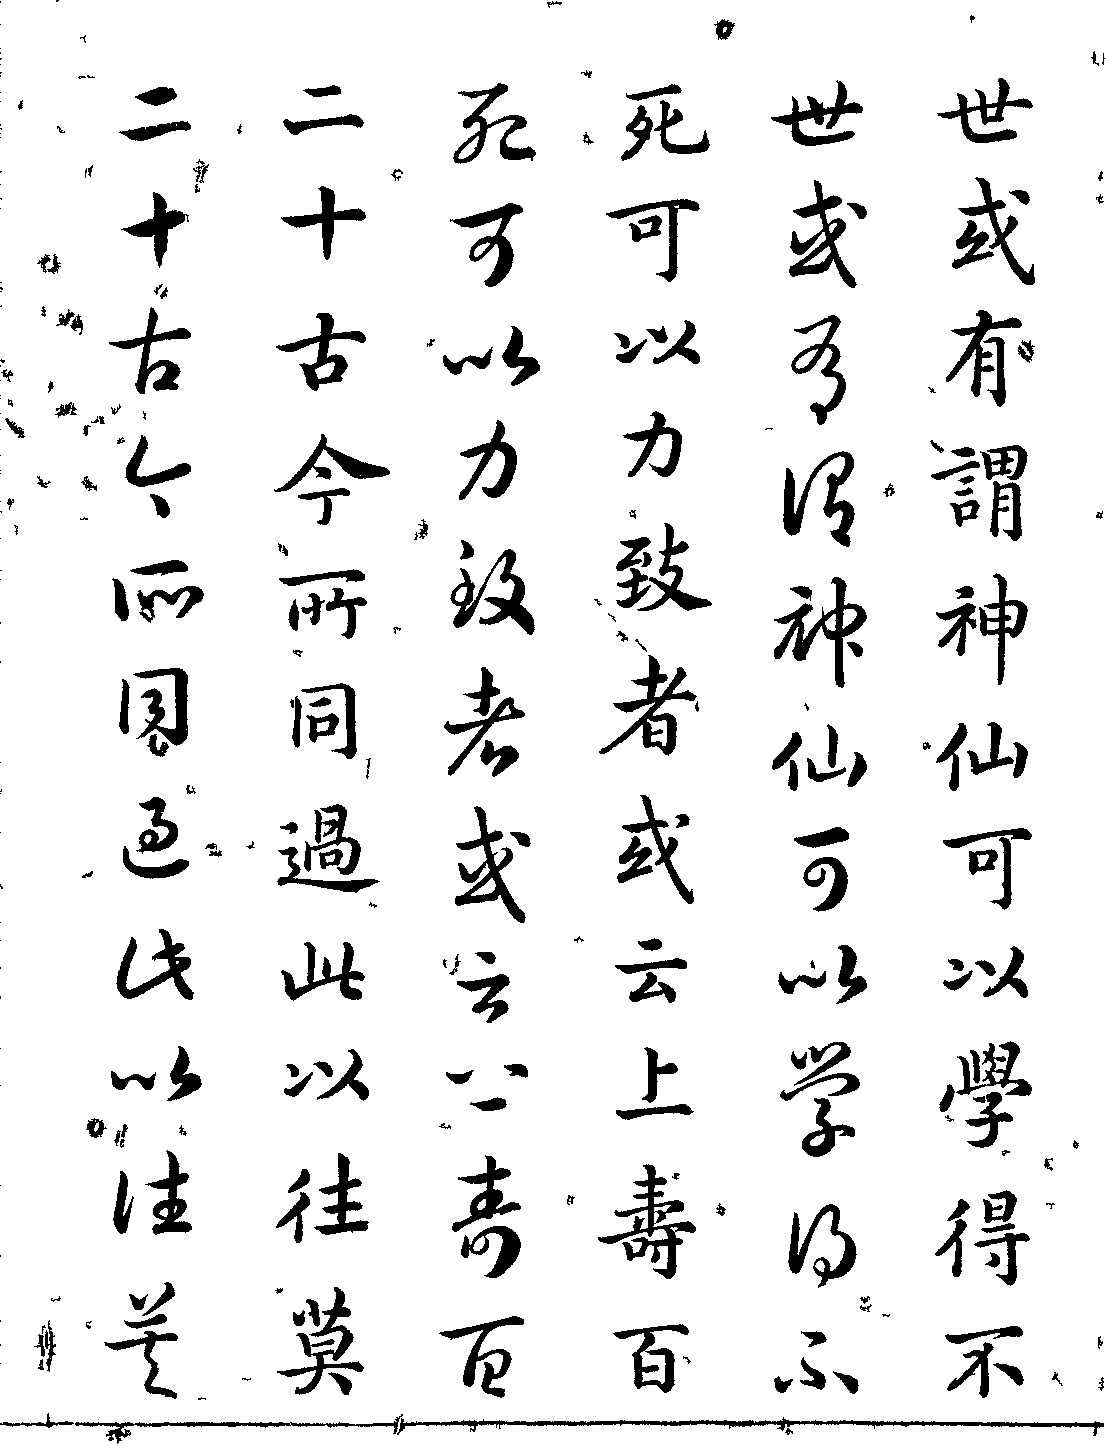 世或有謂神仙可以學得不
世或有謂神仙可以学得不
死可以力致者或云上壽百
死可以力致者或云上壽百
二十古今所同過此以往莫
二十古今所同過此以往莫